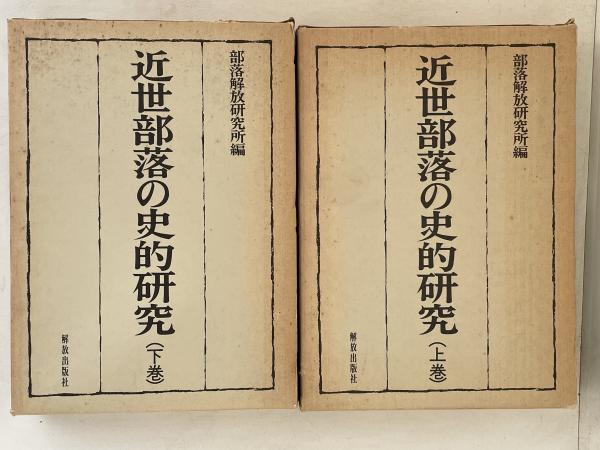 部落解放研究所編
近世部落の史的研究（上巻）
解放出版社
部落解放研究所編
近世部落の史的研究（下巻）
解放出版社